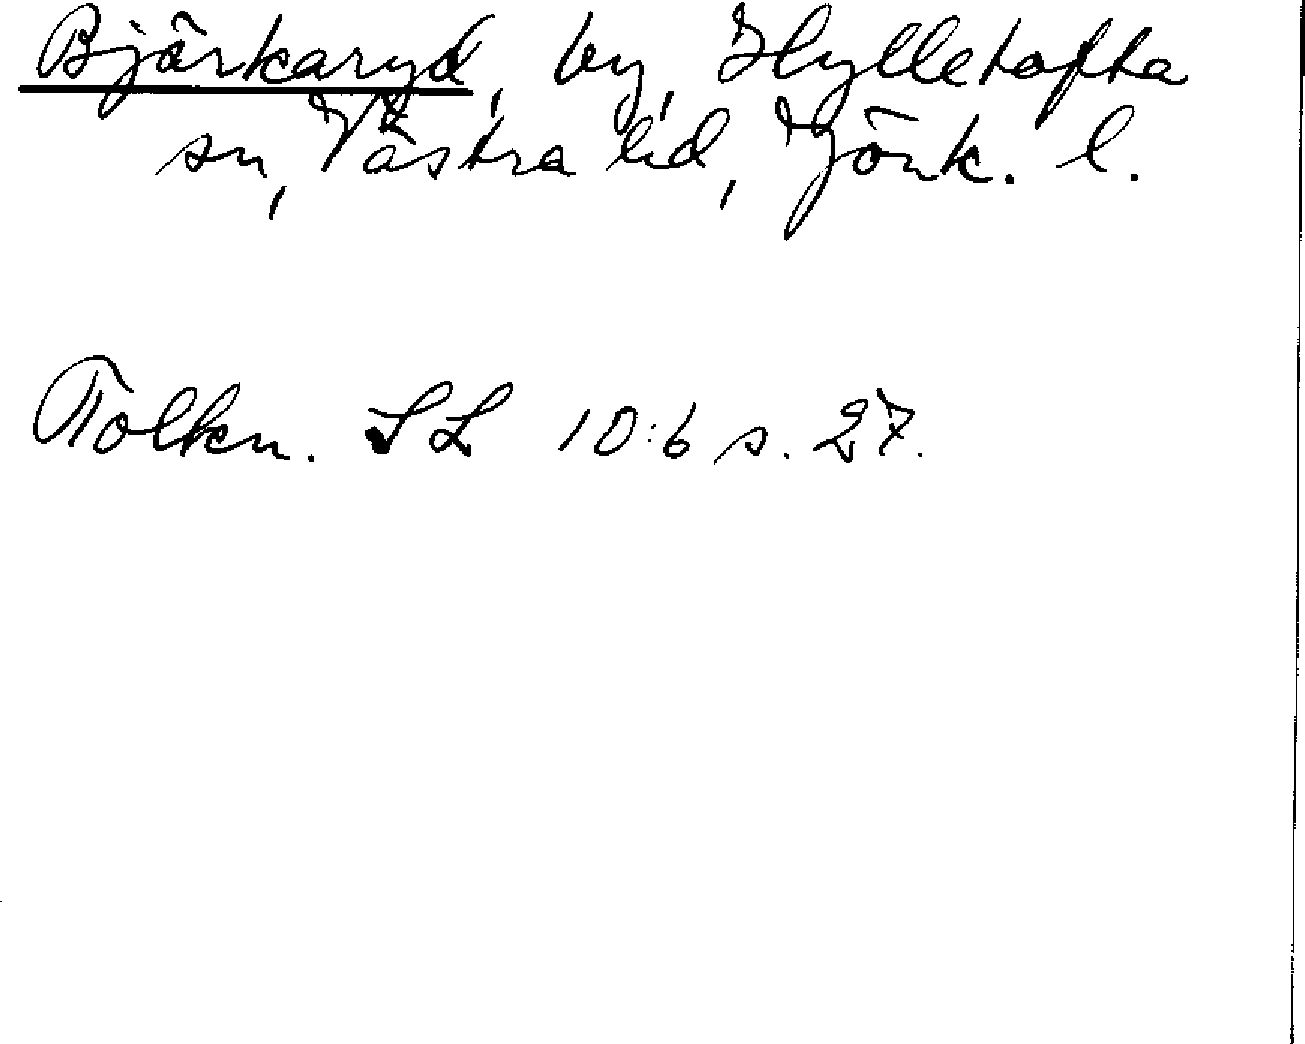 Björkaryd, by, Hylletofta
sn, Västra hd, Jönk. l.
Tolkn. SL 10:6 s. 27.